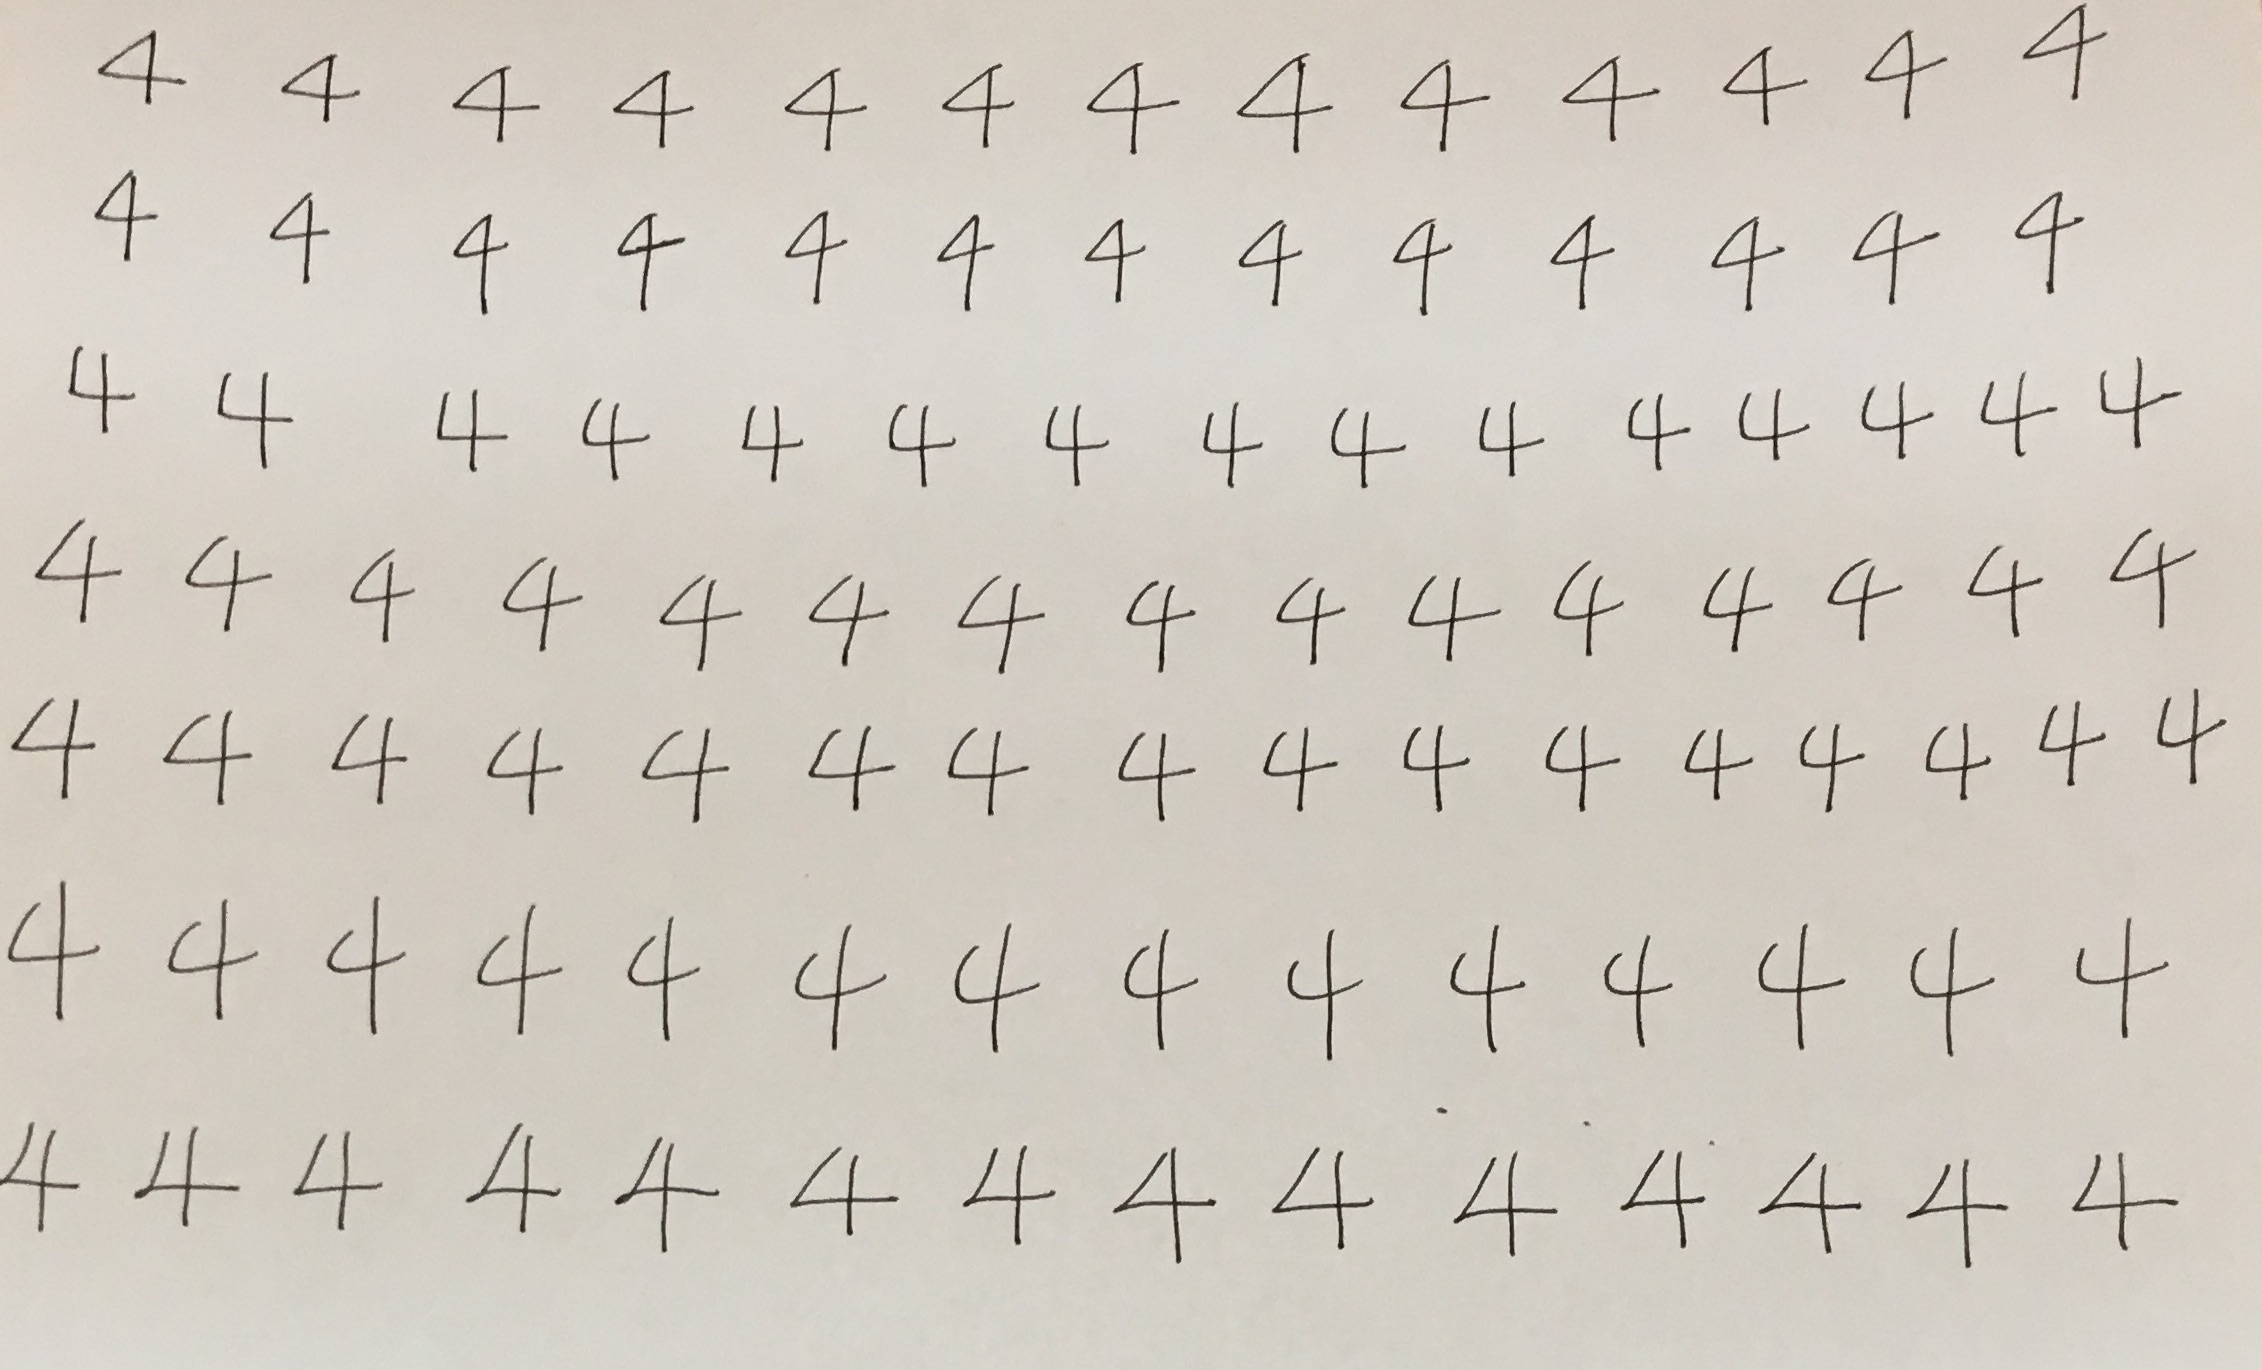 4 4 4 4 4 4 4 4 4 4 4 4 4
4 4 4 4 4 4 4 4 4 4 4 4 4
4 4 4 4 4 4 4 4 4 4 4 4 4 4 4
4 4 4 4 4 4 4 4 4 4 4 4 4 4 4
4 4 4 4 4 4 4 4 4 4 4 4 4 4 4 4
4 4 4 4 4 4 4 4 4 4 4 4 4 4
4 4 4 4 4 4 4 4 4 4 4 4 4 4